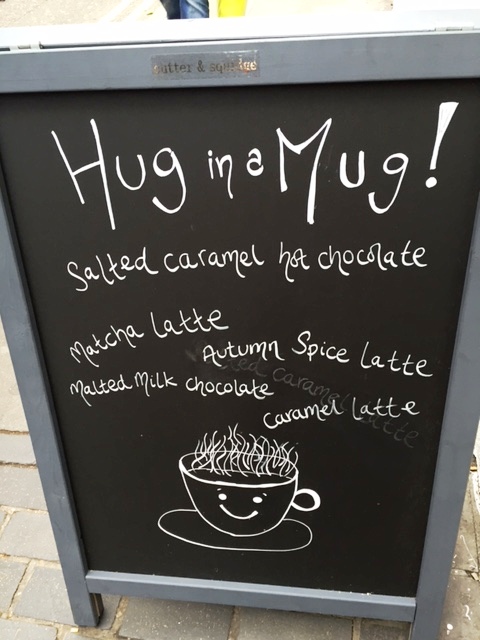 cutter & squidge
Hug in a Mug!
Salted caramel hot chocolate
Matcha Latte
Autumn Spice Latte
Malted Milk chocolate
Caramel Latte